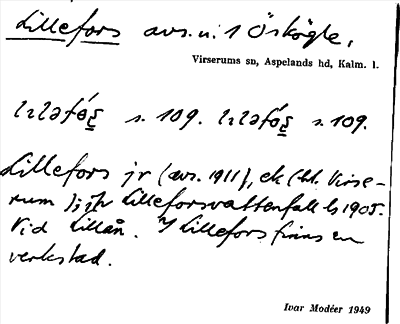 Lillefors avs. u. 1 Öskögle,
Virserums sn, Aspelands hd, Kalm. l.
s. 109. s. 109.
Lillefors jr (avs. 1911), ek (hl. Virse-
rum); jfr Lilleforsvattenfall ls 1905.
Vid Lillån. I Lillefors finns en
verkstad.
Ivar Modéer 1949